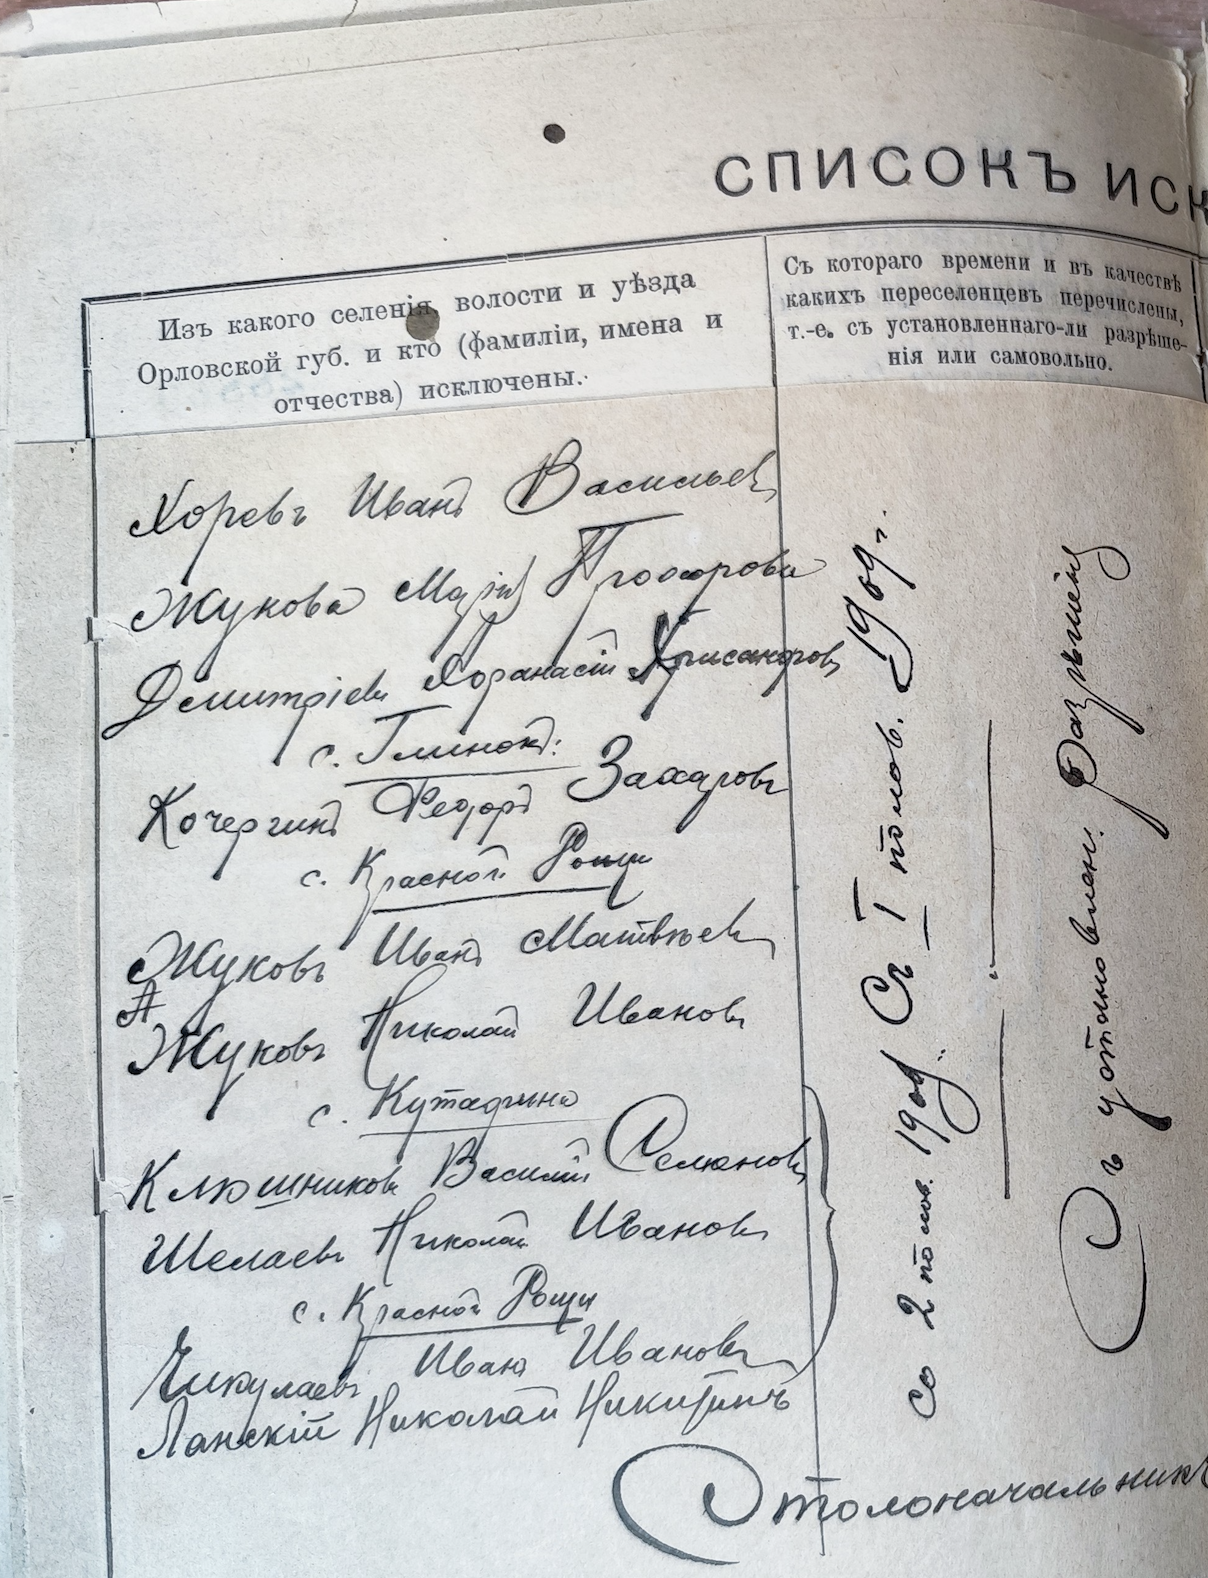 СПИСОКЪ ИСК
Изъ какого селенія, волости и уѣзда
Орловской губ. и кто (фамиліи, имена и
отчества) исключены.
Съ котораго времени и въ качествѣ
какихъ переселенцевъ перечислены,
т.-е. съ установленнаго-ли разрѣше-
нія или самовольно.
Хоревъ Иванъ Васильев
Жукова Марія Прохорова
Дмитріевъ Афанасій Хрисанфовъ
с. Глинокъ:
Кочергинъ Федоръ Захаровъ
с. Красной Рощи
Жуковъ Иванъ Матвѣев
Жуковъ Николай Ивановъ
с.
Клюшниковъ Василій Семеновъ
Шелаевъ Николай Ивановъ
с. Красной Рощи
Чикулаевъ Иванъ Ивановъ
Ланскій Николай Никитинъ
Съ I полов. 19 г.
со 2 полов. 19
Съ установлен. Разрѣшенія
Столоначальникъ